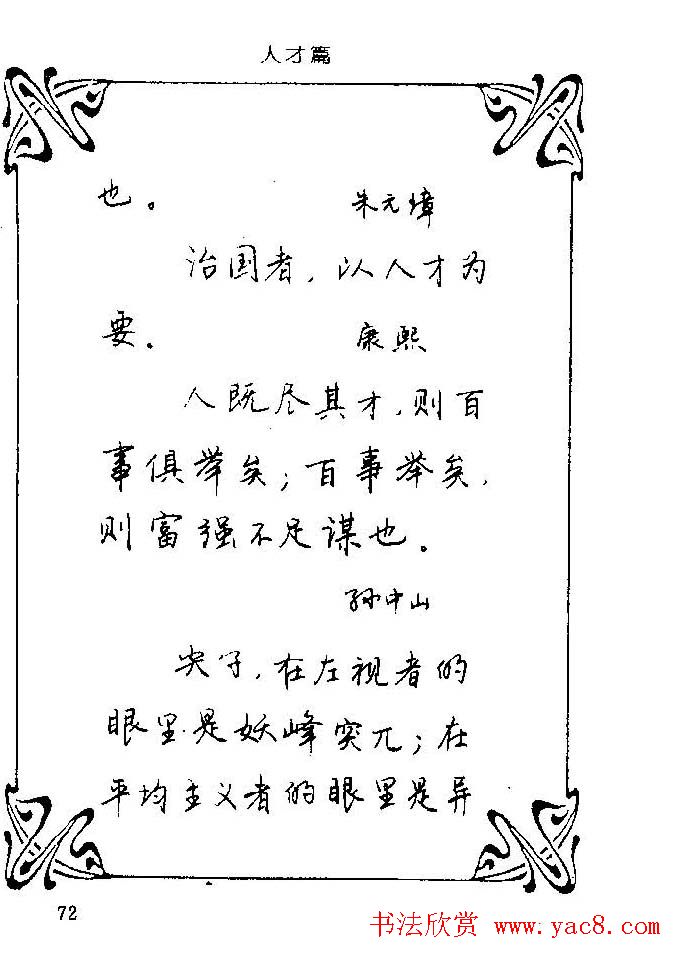 人才篇
也。 朱元璋
治国者，以人才为
要。 康熙
人既尽其才，则百
事俱举矣；百事举矣，
则富强不足谋也。
孙中山
尖子，在左视者的
眼里是妖峰突兀；在
平均主义者的眼里是异
72
书法欣赏 www.yac8.com